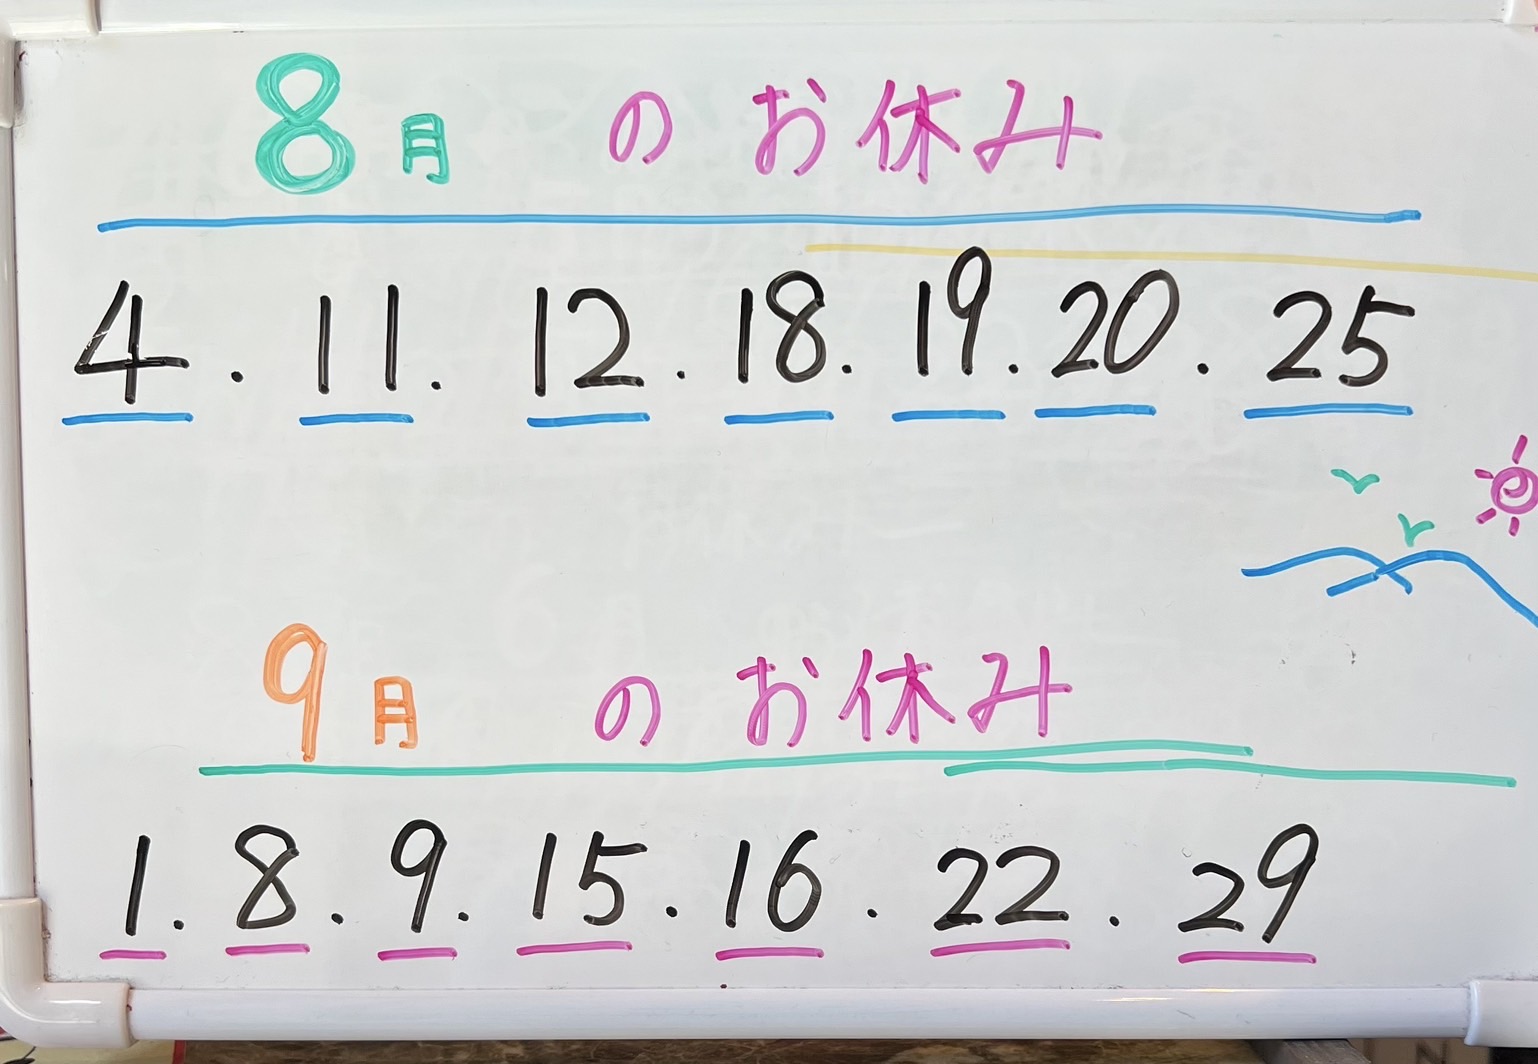 8月 のお休み
4. 11. 12. 18. 19. 20. 25
9月 のお休み
1. 8. 9. 15. 16. 22. 29